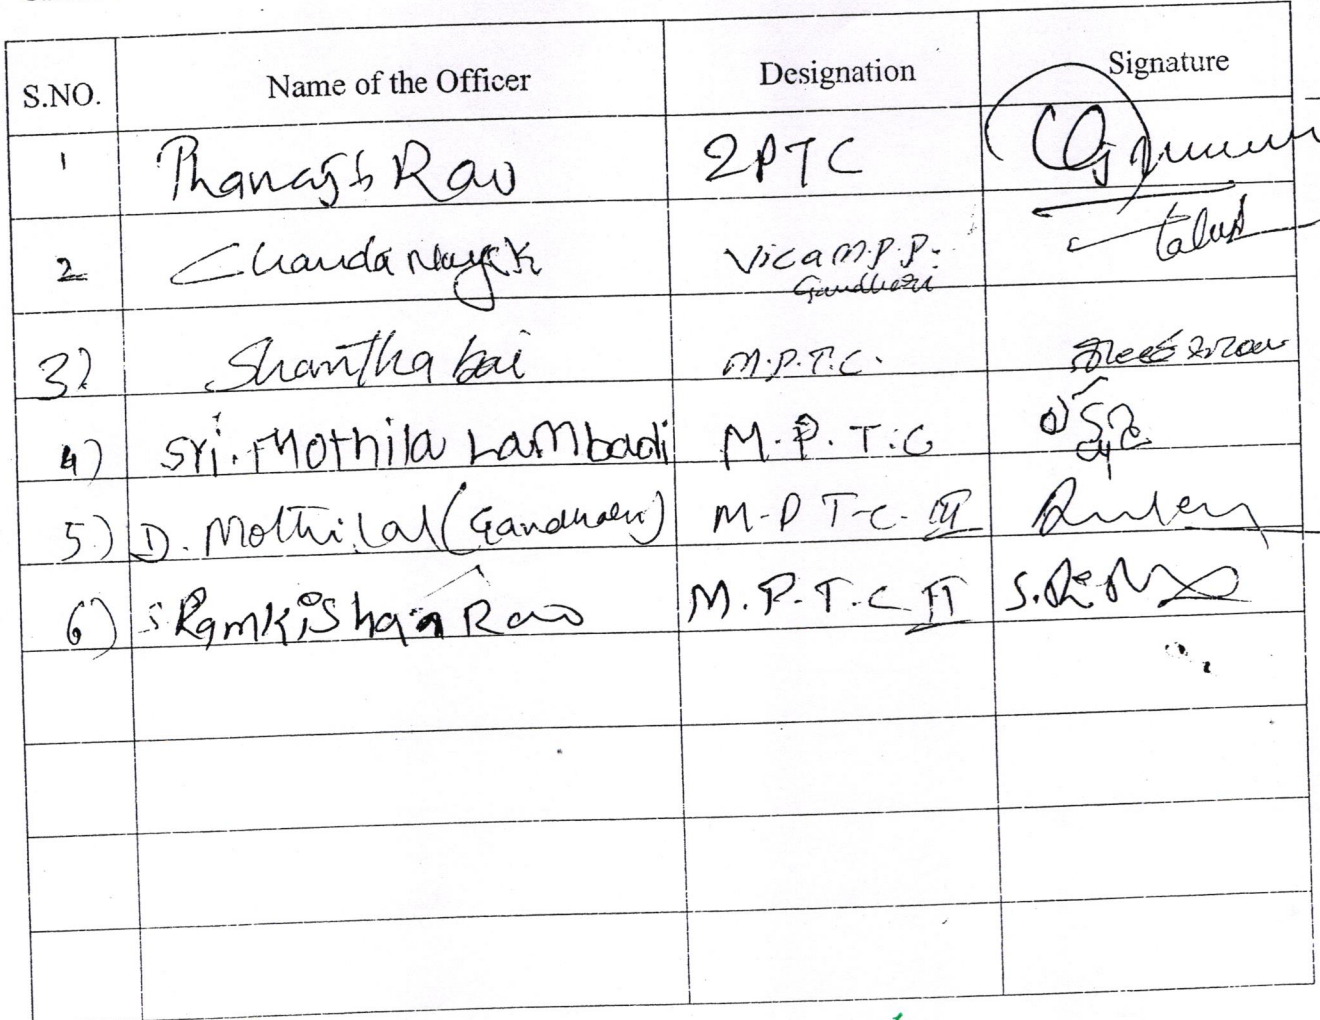 S.NO. Name of the Officer Designation Signature
1 Rao ZPTC
2 Chanda Nayak Vica M.P.P.
Gandhari
3) Shantha bai M.P.T.C.
4) Sri. Mothila Lambadi M.P.T.C
5) D. Mothilal (Gandhari) M.P T.C. III
6) S RamKiShan Rao M.P.T.C II